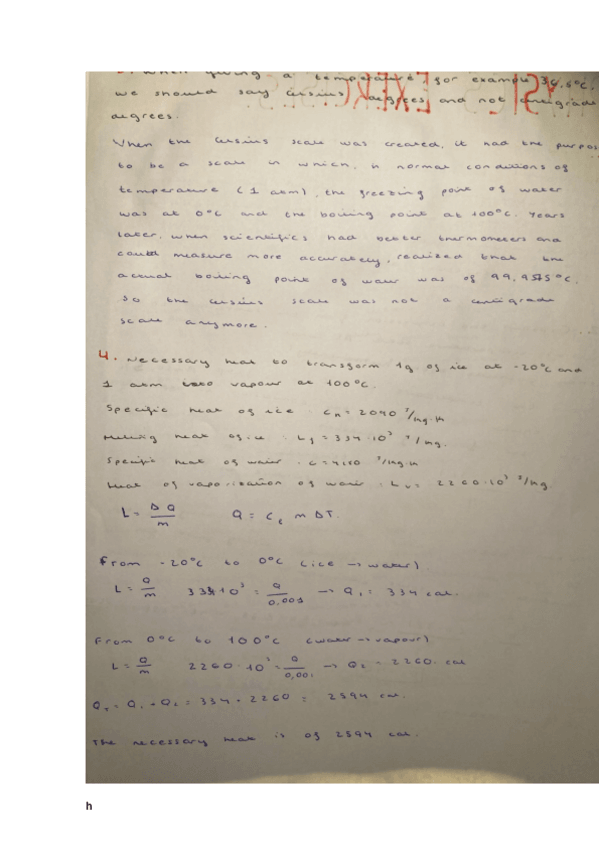 when giving a temperature, for example 36.5°C,
we should say celsius degrees and not centigrade
degrees.
When the Celsius scale was created, it had the purpos
to be a scale in which, in normal conditions of
temperature (1 atm), the freezing point of water
was at 0°C and the boiling point at 100°C. Years
later, when scientifics had better thermometers and
could measure more accurately, realized that the
actual boiling point of water was of 99,9575°C.
So the celsius scale was not a centigrade
scale anymore.
4. Necessary heat to transform 1g of ice at -20°C and
1 atm into vapour at 100°C.
Specific heat of ice : Cn = 2040 J/kg·K
Melting heat of ice : Lf = 334·10³ J/kg.
Specific heat of water : C = 4180 J/kg·K
Heat of vaporization of water : Lv = 2260·10³ J/kg
L = ΔQ/m Q = Ce m ΔT.
From -20°C to 0°C (ice → water)
L = Q/m 334·10³ = Q/0.001 → Q1 = 334 cal.
From 0°C to 100°C (water → vapour)
L = Q/m 2260·10³ = Q/0,001 → Q2 = 2260 cal
QT = Q1 + Q2 = 334 + 2260 = 2594 cal.
The necessary heat is of 2594 cal.
h